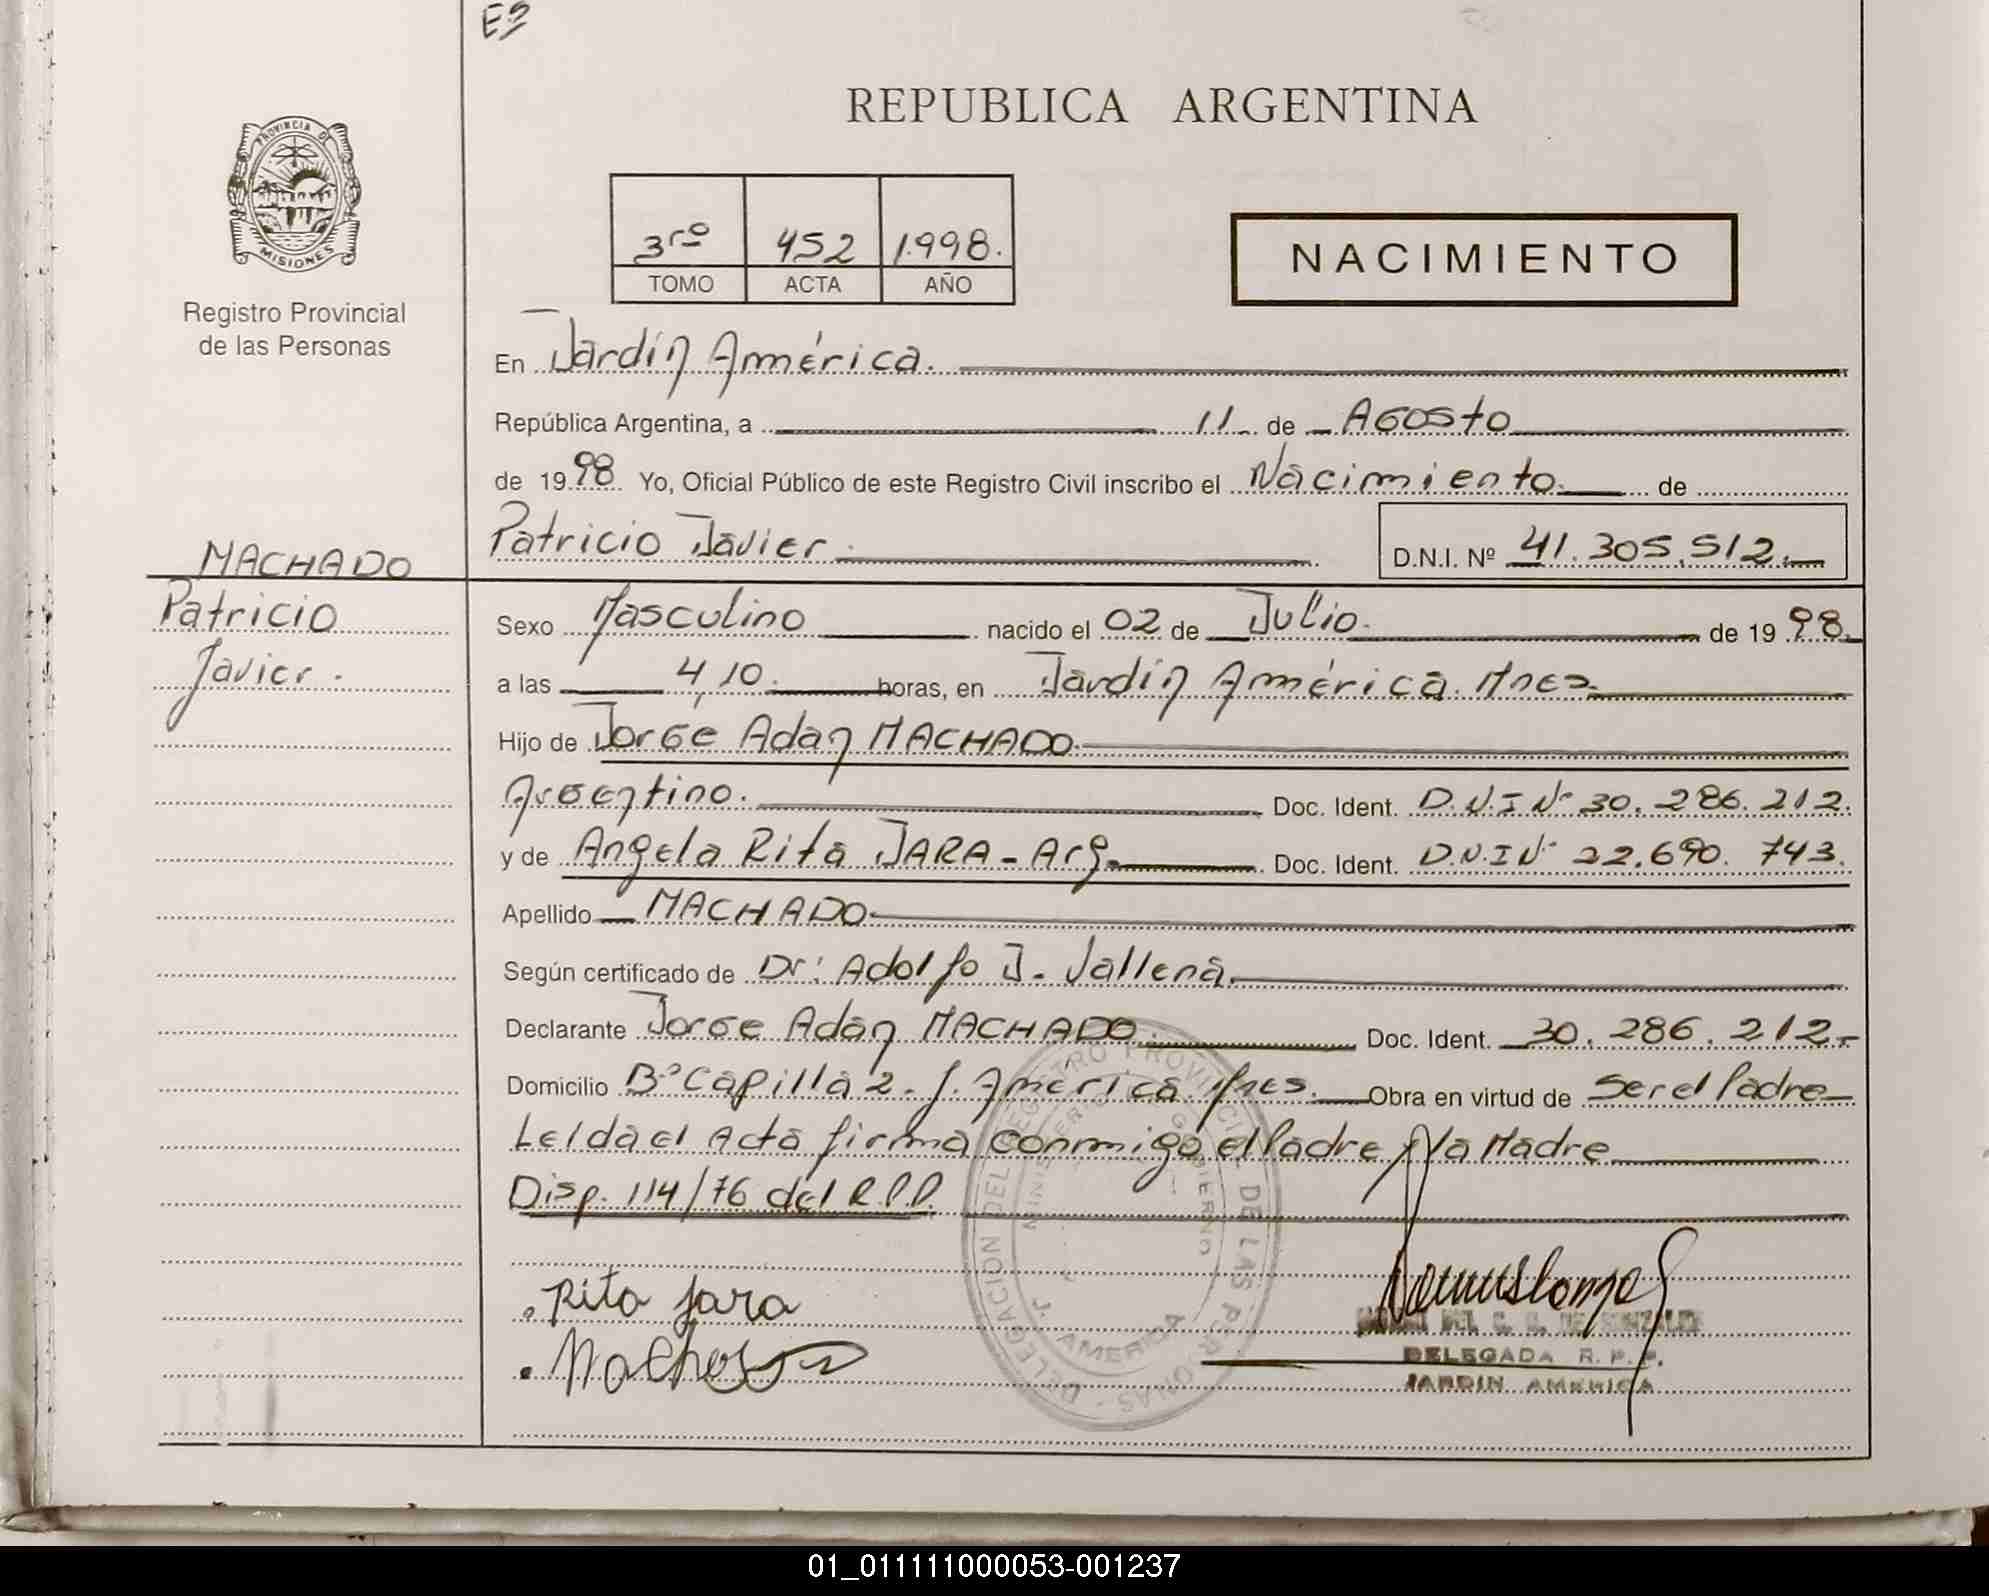 ES
REPUBLICA ARGENTINA
PROVINCIA DE
MISIONES
Registro Provincial
de las Personas
3ro 452 1.998.
TOMO ACTA AÑO
NACIMIENTO
En Jardín América.
República Argentina, a 11 de Agosto
de 1998. Yo, Oficial Público de este Registro Civil inscribo el Nacimiento de
Patricio Javier D.N.I. Nº 41.305.512.
MACHADO
Patricio
Javier.
Sexo Masculino nacido el 02 de Julio. de 1998.
a las 4,10. horas, en Jardín América. Mnes.
Hijo de Jorge Adán MACHADO.
Argentino. Doc. Ident. D.N.I Nº 30.286.212.
y de Angela Rita JARA - Arg. Doc. Ident. D.N.I Nº 22.690.743.
Apellido MACHADO
Según certificado de Dr: Adolfo J. Vallena.
Declarante Jorge Adán MACHADO. Doc. Ident. 30.286.212.-
Domicilio Bº Capilla 2. J. America. Mnes. Obra en virtud de Ser el Padre
Leida el Acta firma conmigo el Padre y la Madre
Disp. 114/76 del R.P.P.
DELEGACION DEL REGISTRO PROVINCIAL DE LAS PERSONAS
MINISTERIO GOBIERNO
J. AMERICA
Rita Jara
DEL C. G. DE GONZALEZ
DELEGADA R.P.P.
JARDIN AMERICA
01_011111000053-001237